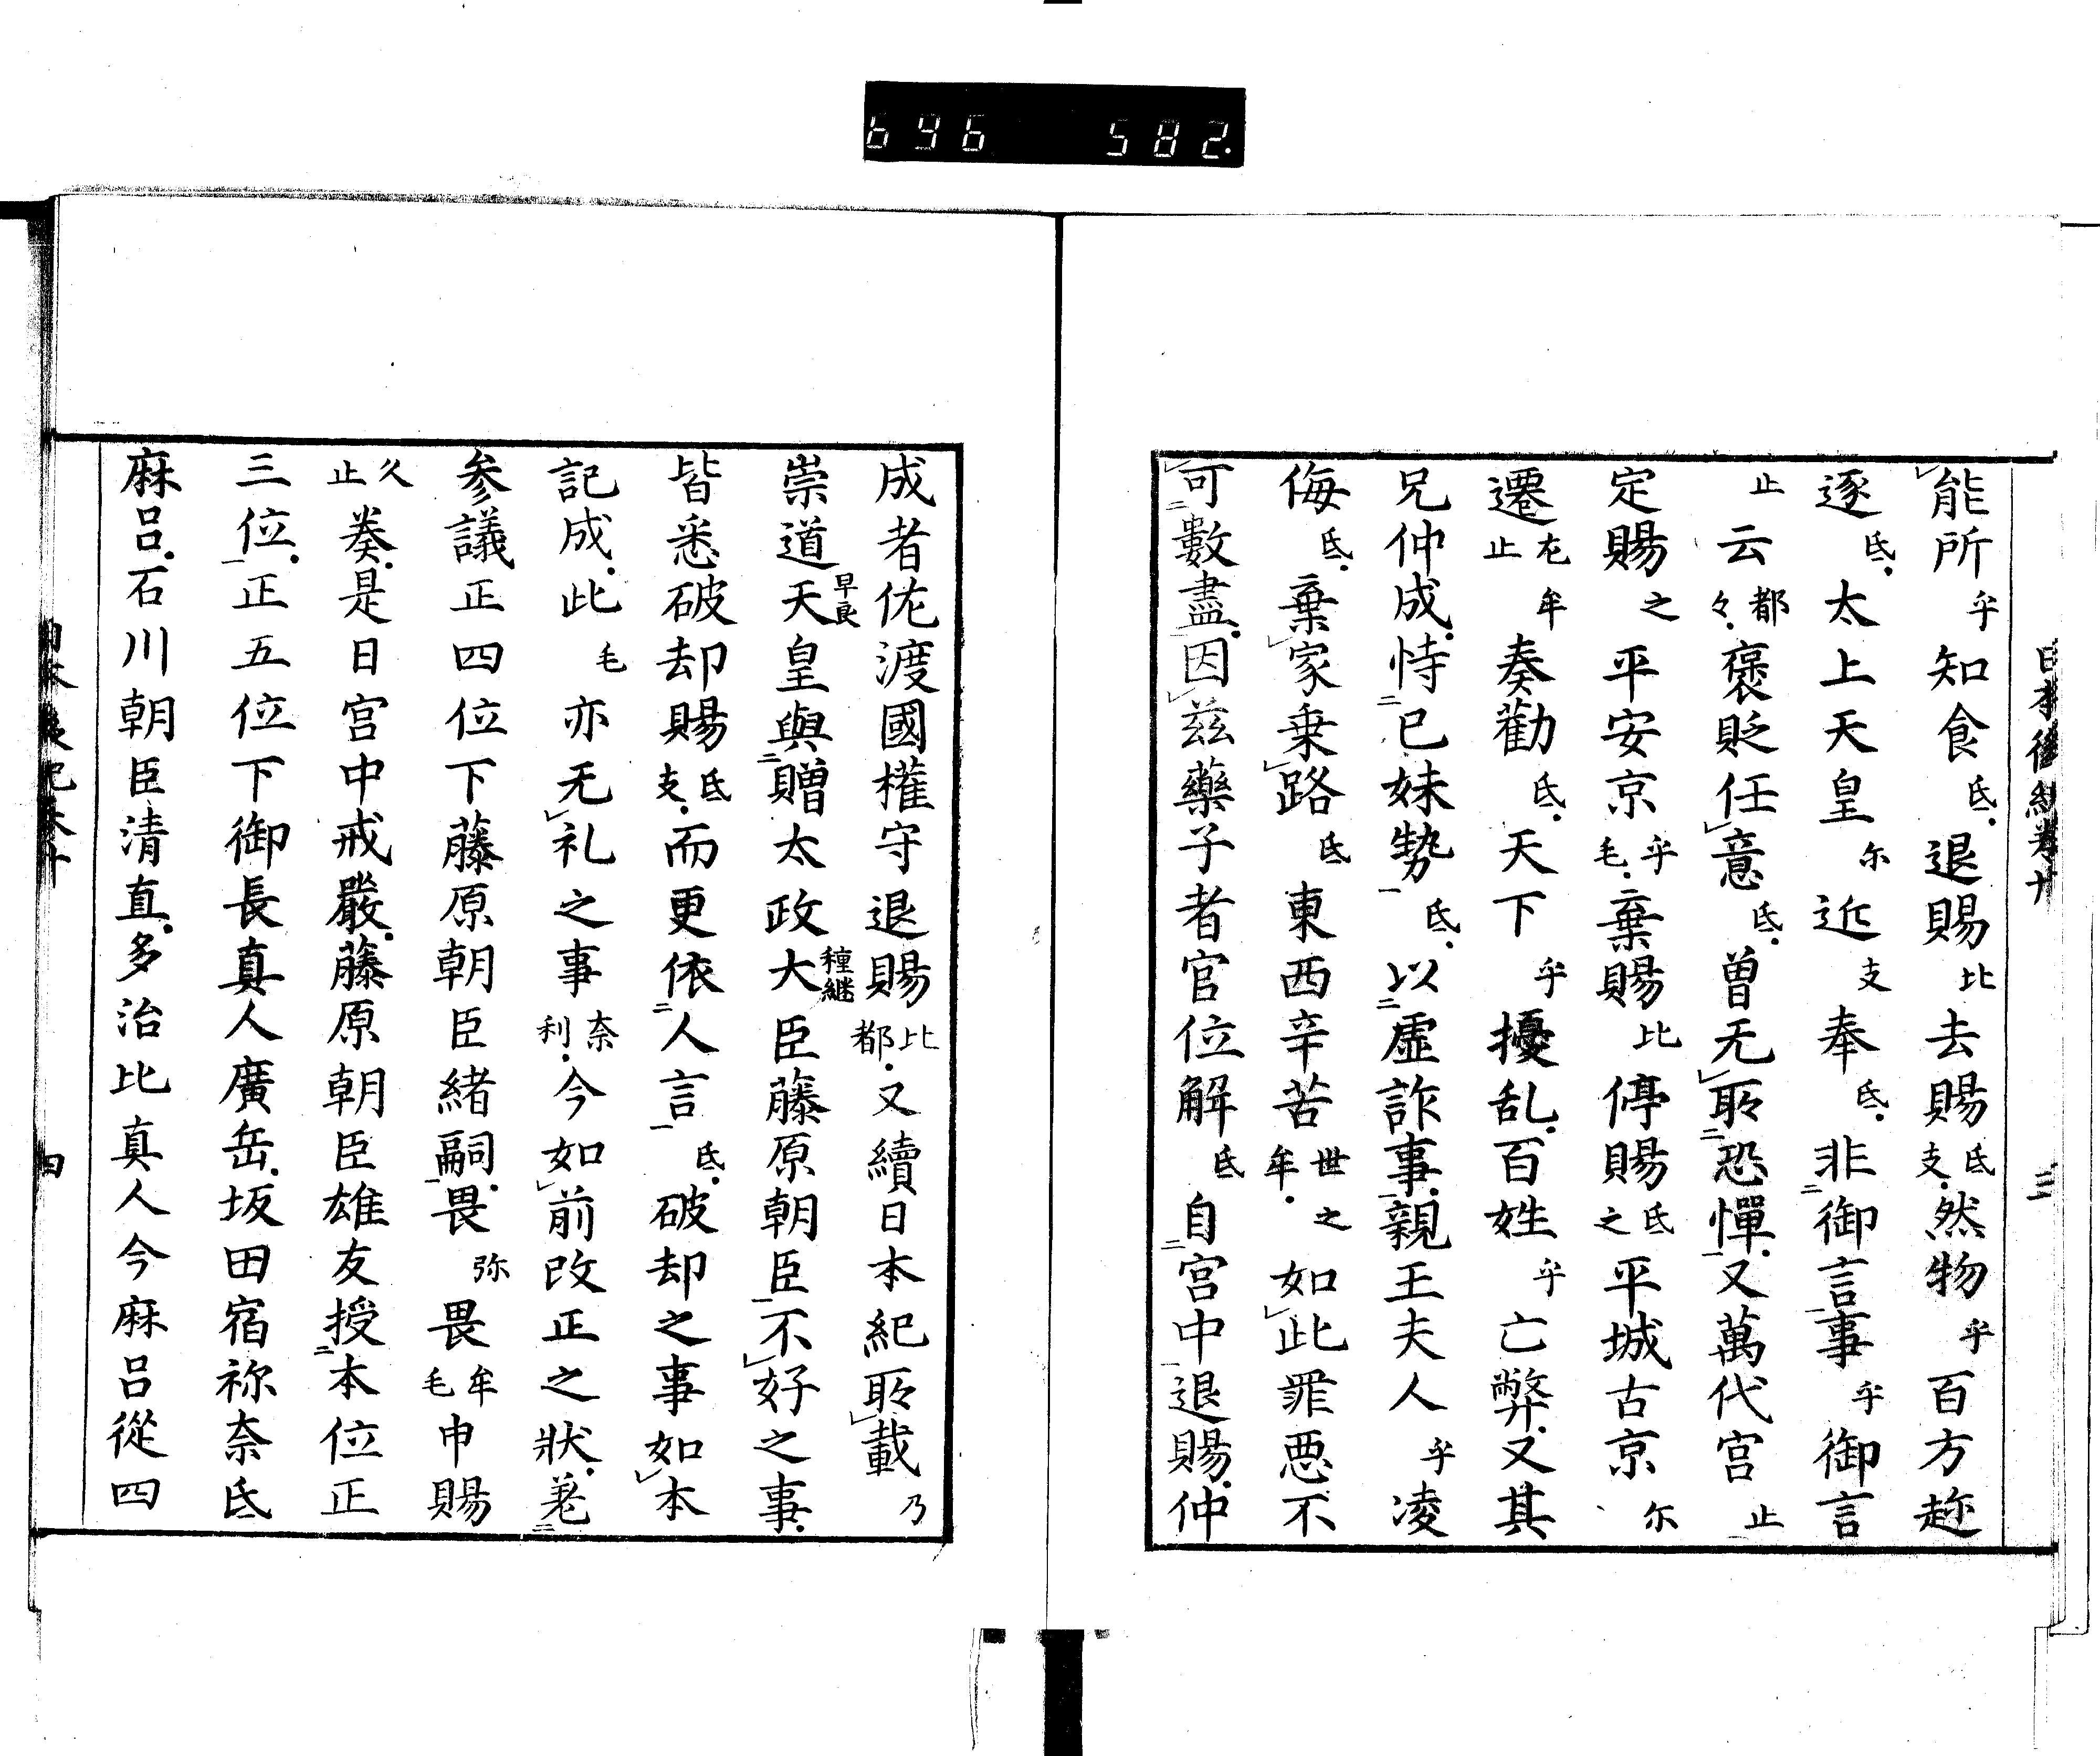 696 582.
日本後紀卷十 三
能所乎知食氐退賜比去賜氐支然物乎百方趁
逐氐太上天皇尓近支奉氐非御言事乎御言
止云都々褒貶任意氐曽无所恐憚又萬代宮止
定賜之平安京乎毛棄賜比停賜氐之平城古京尓
遷左牟止奏勸氐天下乎擾乱百姓乎亡弊又其
兄仲成恃己妹勢氐以虚詐事親王夫人乎凌
侮氐棄家乗路氐東西辛苦世之牟如此罪悪不
可數盡因兹藥子者官位解氐自宮中退賜仲
成者佐渡國權守退賜比都又續日本紀所載乃
崇道天皇與贈太政大臣藤原朝臣不好之事
早良
種継
皆悉破却賜氐支而更依人言氐破却之事如本
記成此毛亦无礼之事奈利今如前改正之状差
参議正四位下藤原朝臣緒嗣畏弥畏牟毛申賜
久止奏是日宮中戒嚴藤原朝臣雄友授本位正
三位正五位下御長真人廣岳坂田宿祢奈氐
麻呂石川朝臣清直多治比真人今麻呂從四
四